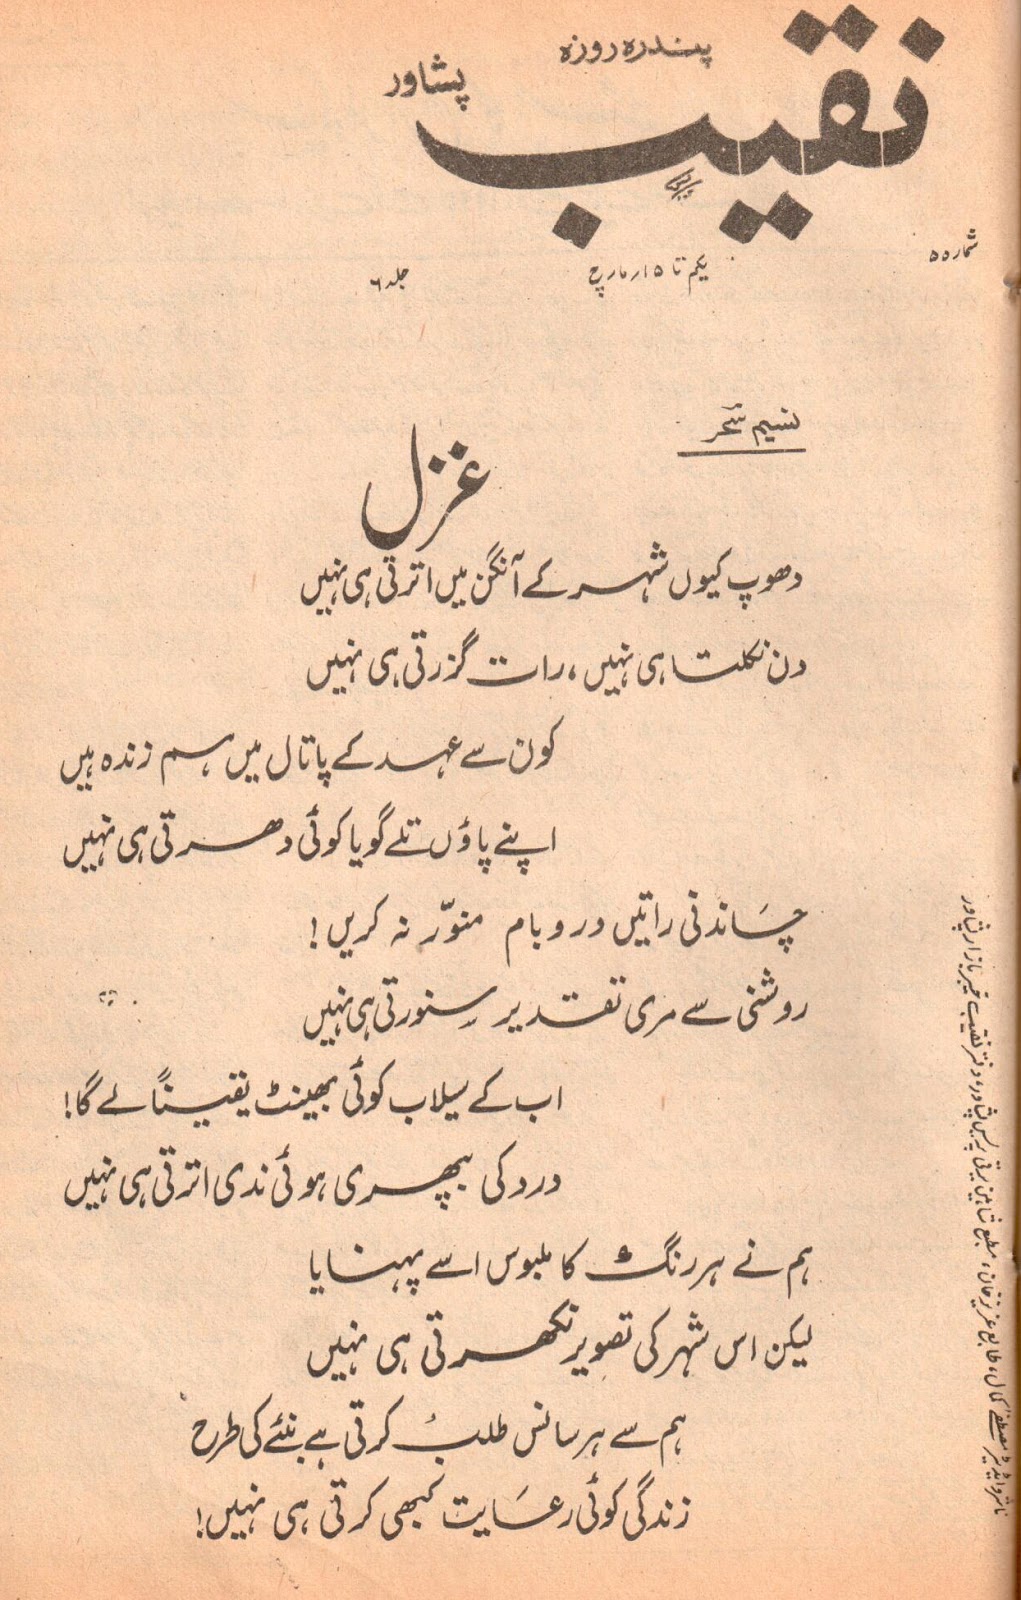 پندرہ روزہ
نقیب
پشاور
شمارہ ۵
یکم تا ۱۵ مارچ
جلد ۶
نسیم سَحر
غزل
دھوپ کیوں شہر کے آنگن میں اترتی ہی نہیں
دن نکلتا ہی نہیں، رات گزرتی ہی نہیں
کون سے عہد کے پاتال میں ہم زندہ ہیں
اپنے پاؤں تلے گویا کوئی دھرتی ہی نہیں
چَاندنی راتیں در و بام منوّر نہ کریں!
روشنی سے مری تقدیر سنورتی ہی نہیں
اب کے سیلاب کوئی بھینٹ یقیناً لے گا!
درد کی بپھری ہوئی ندی اترتی ہی نہیں
ہم نے ہر رنگ کا ملبوس اسے پہنایا
لیکن اس شہر کی تصویر نکھرتی ہی نہیں
ہم سے ہر سانس طلب کرتی ہے بنئے کی طرح
زندگی کوئی رعَایت کبھی کرتی ہی نہیں!
ناشر و ایڈیٹر مصطفےٰ کمال، طابع عزیز خان، مطبع شاہین برقی پریس پشاور، دفتر نقیب خیبر بازار پشاور